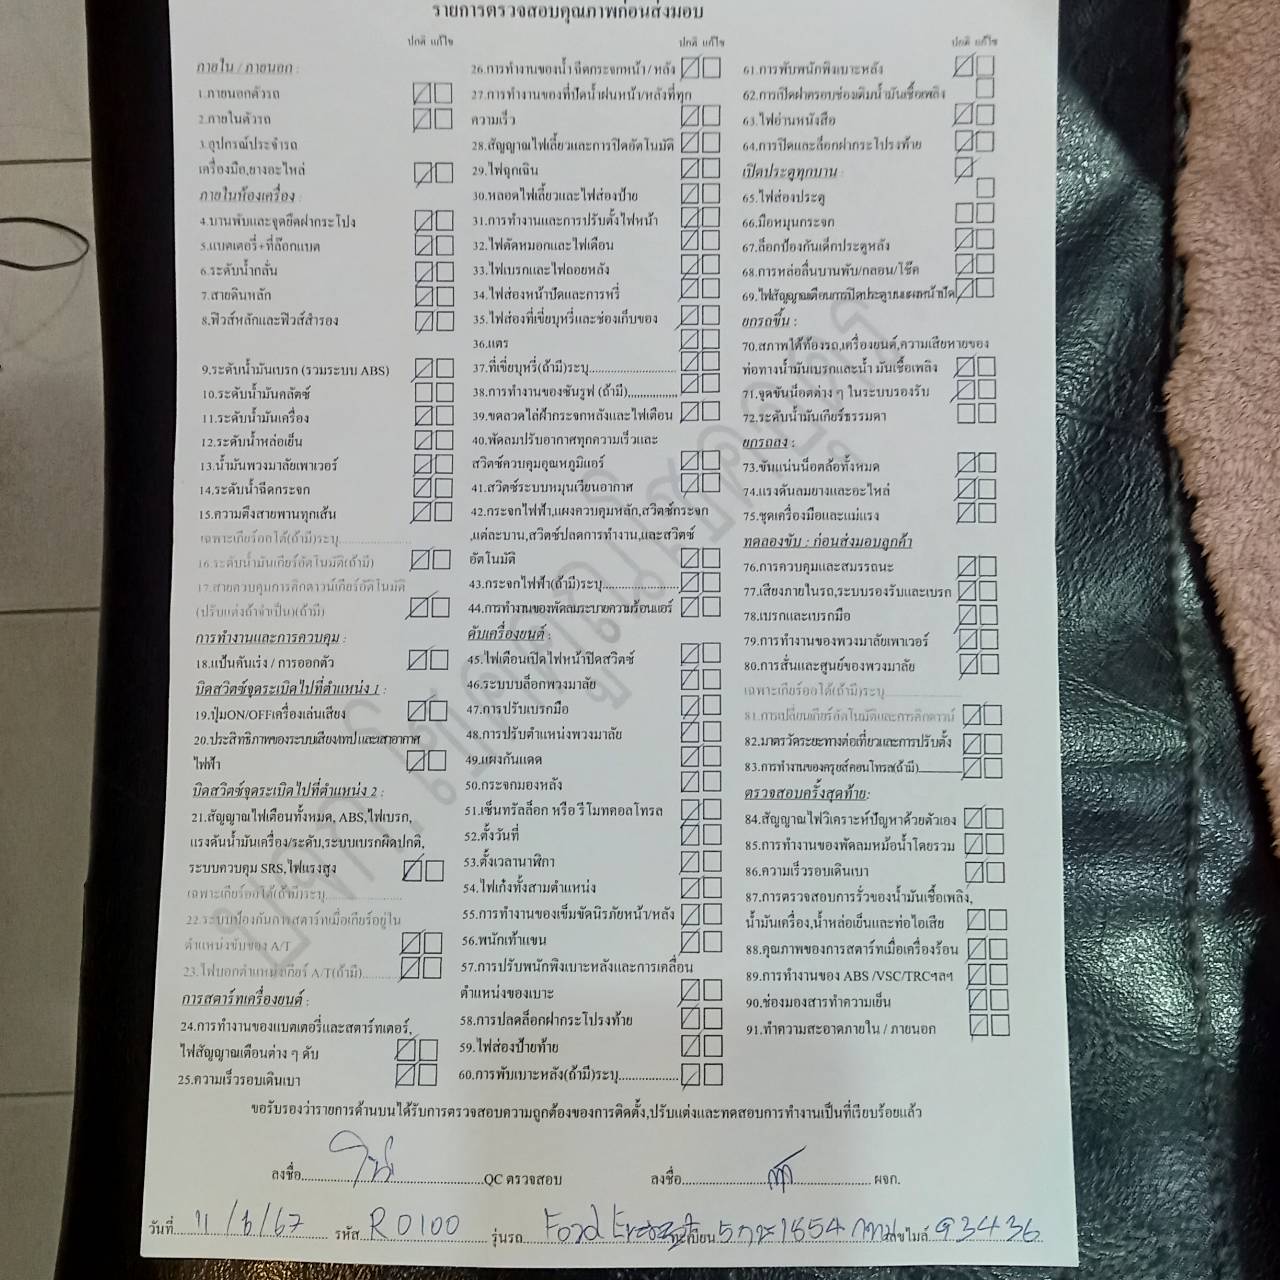 รายการตรวจสอบคุณภาพก่อนส่งมอบ
ปกติ แก้ไข
ภายใน / ภายนอก :
1.ภายนอกตัวรถ
2.ภายในตัวรถ
3.อุปกรณ์ประจำรถ
เครื่องมือ,ยางอะไหล่
ภายในห้องเครื่อง :
4.บานพับและจุดยึดฝากระโปง
5.แบตเตอรี่+ที่ล๊อกแบต
6.ระดับน้ำกลั่น
7.สายดินหลัก
8.ฟิวส์หลักและฟิวส์สำรอง
9.ระดับน้ำมันเบรก (รวมระบบ ABS)
10.ระดับน้ำมันคลัตซ์
11.ระดับน้ำมันเครื่อง
12.ระดับน้ำหล่อเย็น
13.น้ำมันพวงมาลัยเพาเวอร์
14.ระดับน้ำฉีดกระจก
15.ความตึงสายพานทุกเส้น
เฉพาะเกียร์ออโต้(ถ้ามี)ระบุ..................
16.ระดับน้ำมันเกียร์อัตโนมัติ(ถ้ามี)
17.สายควบคุมการคิกดาวน์เกียร์อัตโนมัติ
(ปรับแต่งถ้าจำเป็น)(ถ้ามี)
การทำงานและการควบคุม :
18.แป้นคันเร่ง / การออกตัว
บิดสวิตซ์จุดระเบิดไปที่ตำแหน่ง 1 :
19.ปุ่มON/OFFเครื่องเล่นเสียง
20.ประสิทธิภาพของระบบเสียง/เทป และเสาอากาศ
ไฟฟ้า
บิดสวิตซ์จุดระเบิดไปที่ตำแหน่ง 2 :
21.สัญญาณไฟเตือนทั้งหมด, ABS,ไฟเบรก,
แรงดันน้ำมันเครื่อง/ระดับ,ระบบเบรกผิดปกติ,
ระบบควบคุม SRS,ไฟแรงสูง
เฉพาะเกียร์ออโต้(ถ้ามี)ระบุ..................
22.ระบบป้องกันการสตาร์ทเมื่อเกียร์อยู่ใน
ตำแหน่งขับของ A/T
23.ไฟบอกตำแหน่งเกียร์ A/T(ถ้ามี)........
การสตาร์ทเครื่องยนต์ :
24.การทำงานของแบตเตอรี่และสตาร์ทเตอร์,
ไฟสัญญาณเตือนต่าง ๆ ดับ
25.ความเร็วรอบเดินเบา
ปกติ แก้ไข
26.การทำงานของน้ำ ฉีดกระจกหน้า / หลัง
27.การทำงานของที่ปัดน้ำฝนหน้า/หลังที่ทุก
ความเร็ว
28.สัญญาณไฟเลี้ยวและการปิดอัตโนมัติ
29.ไฟฉุกเฉิน
30.หลอดไฟเลี้ยวและไฟส่องป้าย
31.การทำงานและการปรับตั้งไฟหน้า
32.ไฟตัดหมอกและไฟเตือน
33.ไฟเบรกและไฟถอยหลัง
34.ไฟส่องหน้าปัดและการหรี่
35.ไฟส่องที่เขี่ยบุหรี่และช่องเก็บของ
36.แตร
37.ที่เขี่ยบุหรี่(ถ้ามี)ระบุ......................
38.การทำงานของซันรูฟ (ถ้ามี)...............
39.ขดลวดไล่ฝ้ากระจกหลังและไฟเตือน
40.พัดลมปรับอากาศทุกความเร็วและ
สวิตซ์ควบคุมอุณหภูมิแอร์
41.สวิตซ์ระบบหมุนเวียนอากาศ
42.กระจกไฟฟ้า,แผงควบคุมหลัก,สวิตซ์กระจก
,แต่ละบาน,สวิตซ์ปลดการทำงาน,และสวิตซ์
อัตโนมัติ
43.กระจกไฟฟ้า(ถ้ามี)ระบุ......................
44.การทำงานของพัดลมระบายความร้อนแอร์
ดับเครื่องยนต์ :
45.ไฟเตือนเปิดไฟหน้าปิดสวิตซ์
46.ระบบบล็อกพวงมาลัย
47.การปรับเบรกมือ
48.การปรับตำแหน่งพวงมาลัย
49.แผงกันแดด
50.กระจกมองหลัง
51.เซ็นทรัลล็อก หรือ รีโมทคอลโทรล
52.ตั้งวันที่
53.ตั้งเวลานาฬิกา
54.ไฟเก๋งทั้งสามตำแหน่ง
55.การทำงานของเข็มขัดนิรภัยหน้า/หลัง
56.พนักเท้าแขน
57.การปรับพนักพิงเบาะหลังและการเคลื่อน
ตำแหน่งของเบาะ
58.การปลดล็อกฝากระโปรงท้าย
59.ไฟส่องป้ายท้าย
60.การพับเบาะหลัง(ถ้ามี)ระบุ...............
ปกติ แก้ไข
61.การพับพนักพิงเบาะหลัง
62.การเปิดฝาครอบช่องเติมน้ำมันเชื้อเพลิง
63.ไฟอ่านหนังสือ
64.การปิดและล็อกฝากระโปรงท้าย
เปิดประตูทุกบาน :
65.ไฟส่องประตู
66.มือหมุนกระจก
67.ล็อกป้องกันเด็กประตูหลัง
68.การหล่อลื่นบานพับ/กลอน/โช๊ค
69.ไฟสัญญาณเตือนการปิดประตูบนแผงหน้าปัด
ยกรถขึ้น :
70.สภาพใต้ท้องรถ,เครื่องยนต์,ความเสียหายของ
ท่อทางน้ำมันเบรกและน้ำ มันเชื้อเพลิง
71.จุดขันน็อตต่าง ๆ ในระบบรองรับ
72.ระดับน้ำมันเกียร์ธรรมดา
ยกรถลง :
73.ขันแน่นน็อตล้อทั้งหมด
74.แรงดันลมยางและอะไหล่
75.ชุดเครื่องมือและแม่แรง
ทดลองขับ : ก่อนส่งมอบลูกค้า
76.การควบคุมและสมรรถนะ
77.เสียงภายในรถ,ระบบรองรับและเบรก
78.เบรกและเบรกมือ
79.การทำงานของพวงมาลัยเพาเวอร์
80.การสั่นและศูนย์ของพวงมาลัย
เฉพาะเกียร์ออโต้(ถ้ามี)ระบุ..................
81.การเปลี่ยนเกียร์อัตโนมัติและการคิกดาวน์
82.มาตรวัดระยะทางต่อเที่ยวและการปรับตั้ง
83.การทำงานของครุยส์คอนโทรล(ถ้ามี)...............
ตรวจสอบครั้งสุดท้าย:
84.สัญญาณไฟวิเคราะห์ปัญหาด้วยตัวเอง
85.การทำงานของพัดลมหม้อน้ำโดยรวม
86.ความเร็วรอบเดินเบา
87.การตรวจสอบการรั่วของน้ำมันเชื้อเพลิง,
น้ำมันเครื่อง,น้ำหล่อเย็นและท่อไอเสีย
88.คุณภาพของการสตาร์ทเมื่อเครื่องร้อน
89.การทำงานของ ABS /VSC/TRCฯลฯ
90.ช่องมองสารทำความเย็น
91.ทำความสะอาดภายใน / ภายนอก
ขอรับรองว่ารายการด้านบนได้รับการตรวจสอบความถูกต้องของการติดตั้ง,ปรับแต่งและทดสอบการทำงานเป็นที่เรียบร้อยแล้ว
ลงชื่อ.......................................QC ตรวจสอบ
ลงชื่อ....................................... ผจก.
วันที่ 11/6/67 รหัส R0100 รุ่นรถ Ford ทะเบียน 5กะ1854 กทม เลขไมล์ 93436